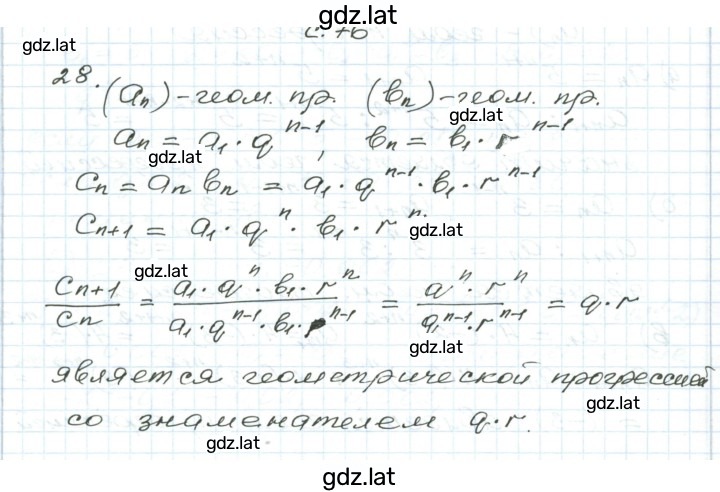 gdz.lat
gdz.lat
28. (aₙ) - геом. пр. (bₙ) - геом. пр.
gdz.lat
aₙ = a₁ · q^(n-1), bₙ = b₁ · r^(n-1)
gdz.lat
Cₙ = aₙ bₙ = a₁ · q^(n-1) · b₁ · r^(n-1)
Cₙ₊₁ = a₁ · q^n · b₁ · r^n.
gdz.lat
gdz.lat
Cₙ₊₁ / Cₙ = (a₁ · q^n · b₁ · r^n) / (a₁ · q^(n-1) · b₁ · r^(n-1)) = (q^n · r^n) / (q^(n-1) · r^(n-1)) = q · r
gdz.lat
является геометрической прогрессией
gdz.lat
со знаменателем q · r.
gdz.lat
gdz.lat